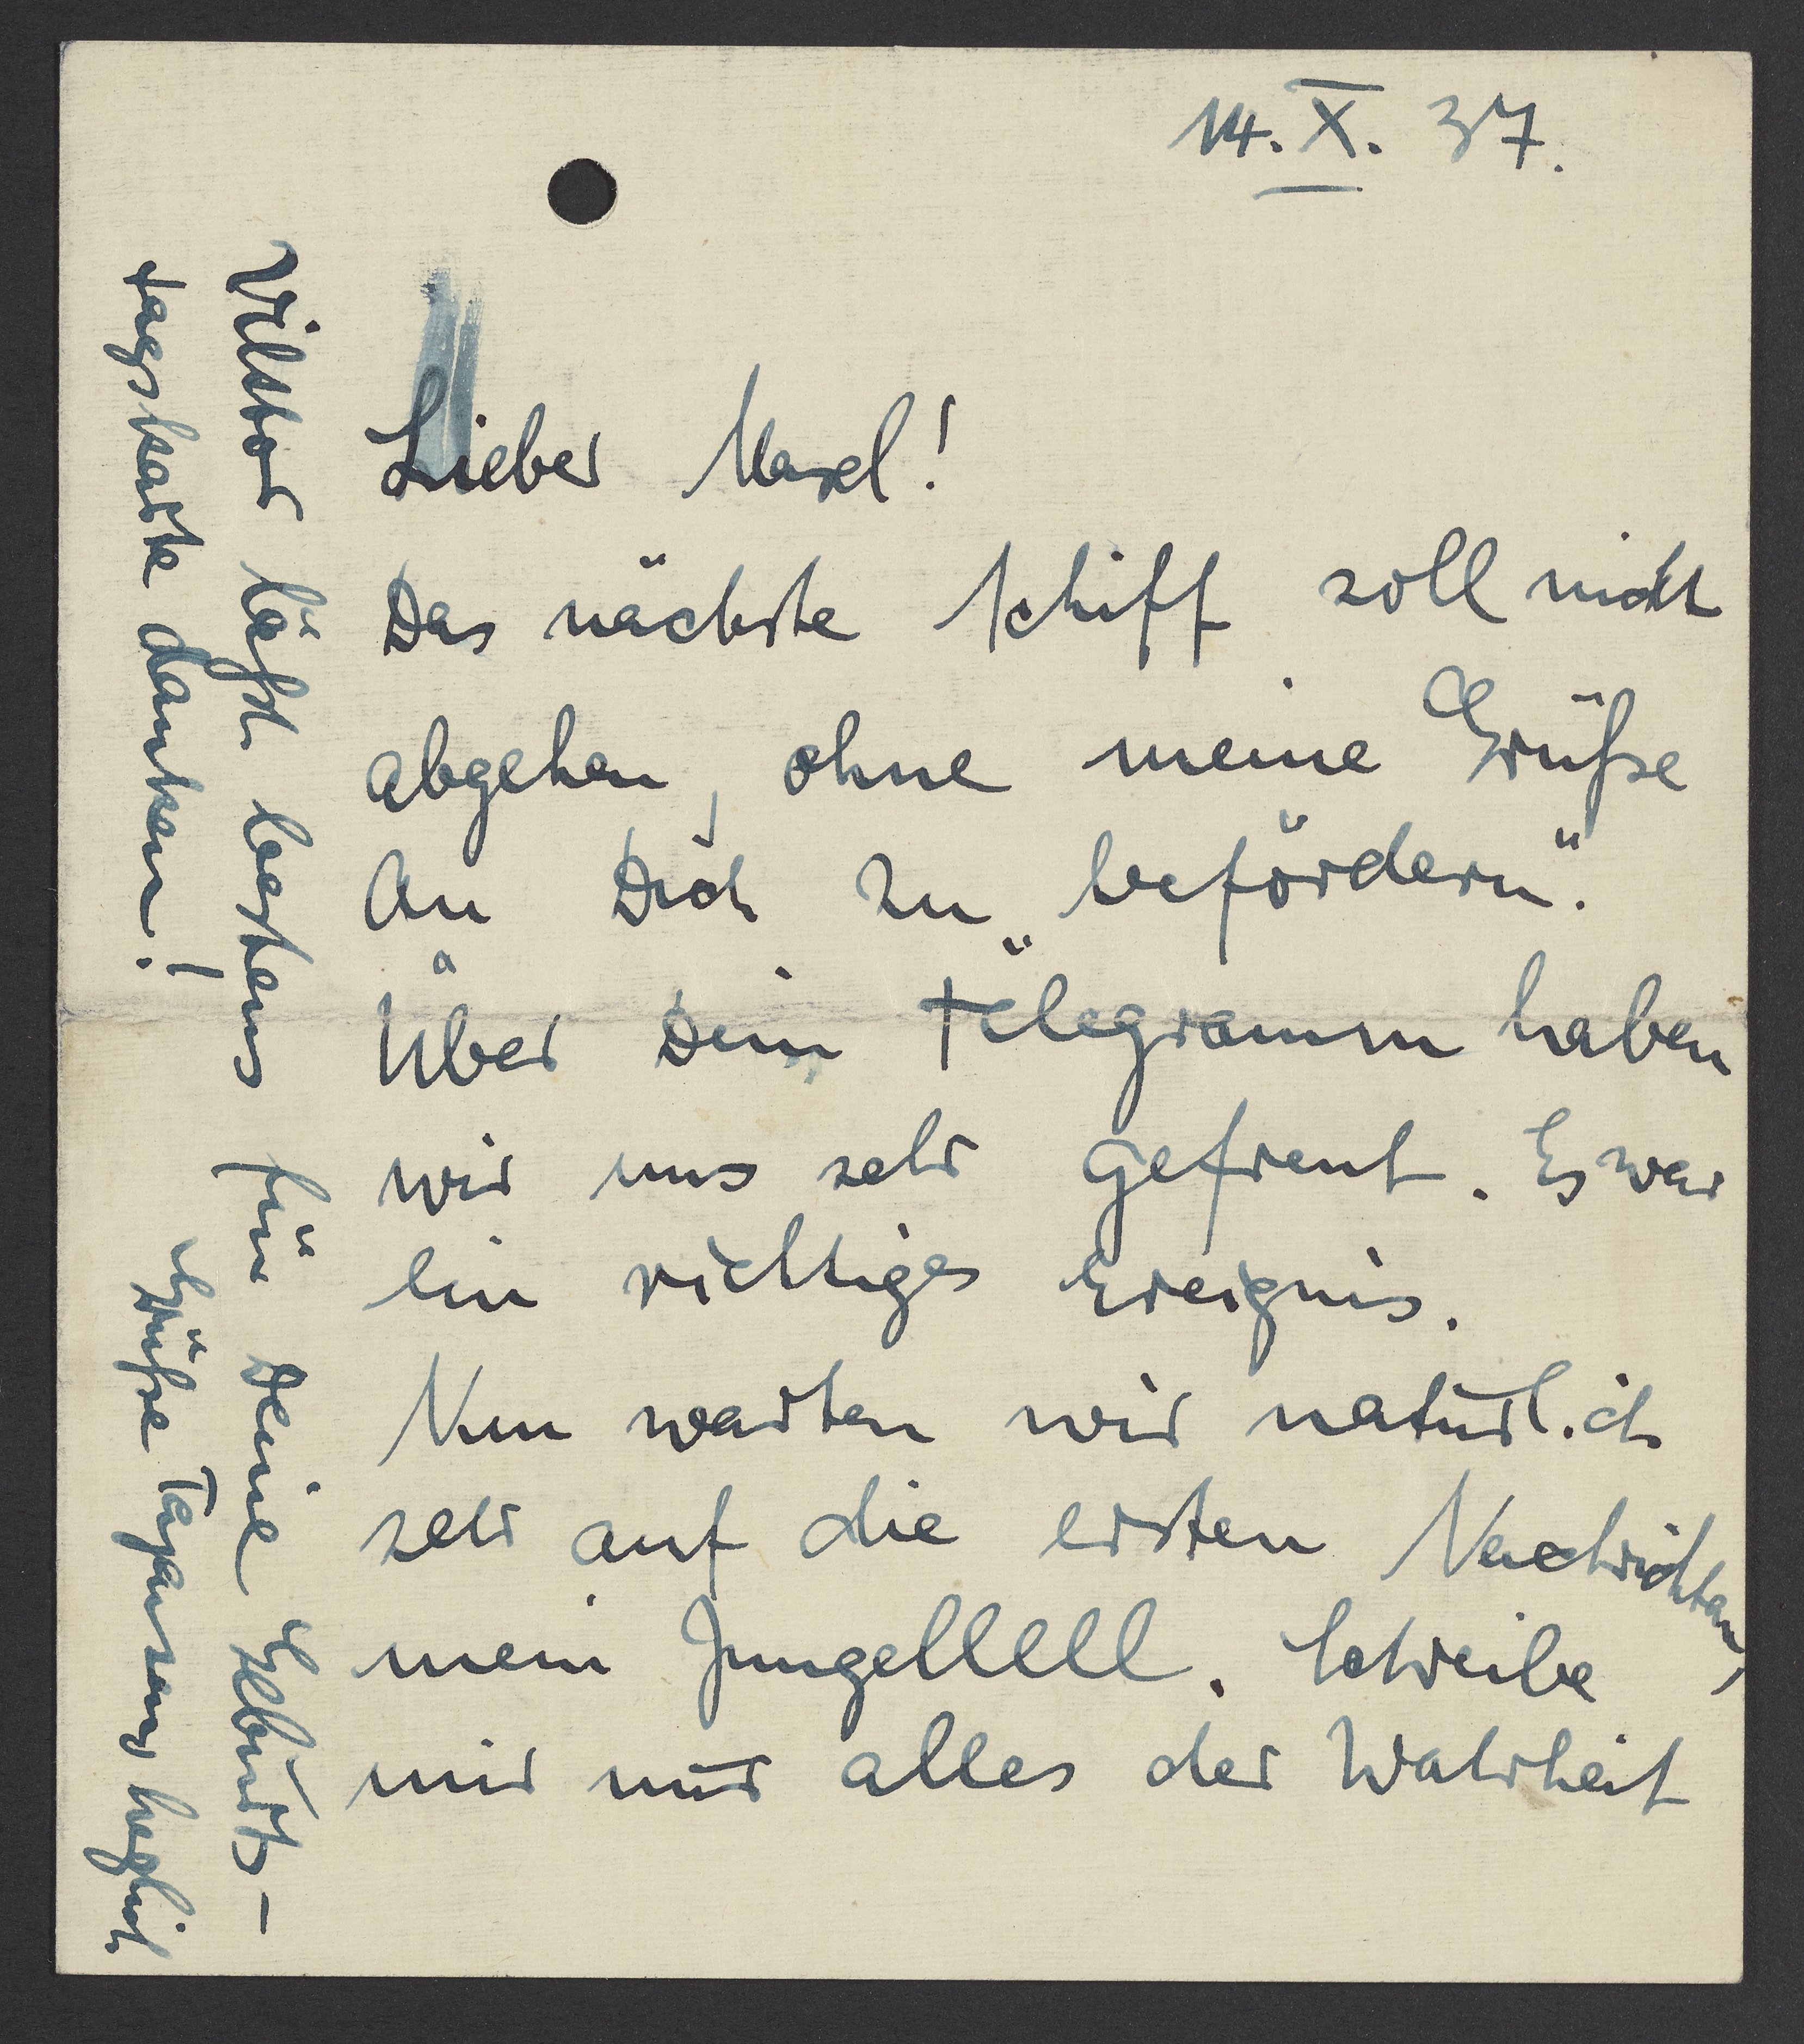 14. X. 37.
Lieber Maxel!
Das nächste Schiff soll nicht
abgehen, ohne meine Grüße
an Dich zu „befördern".
Über Dein Telegramm haben
wir uns sehr gefreut. Es war
ein richtiges Ereignis.
Nun warten wir natürlich
sehr auf die ersten Nachrichten,
mein Jungelllll. Schreibe
mir nur alles der Wahrheit
Viktor läßt bestens für Deine Geburts-
tagskarte danken!
Grüße herzlich